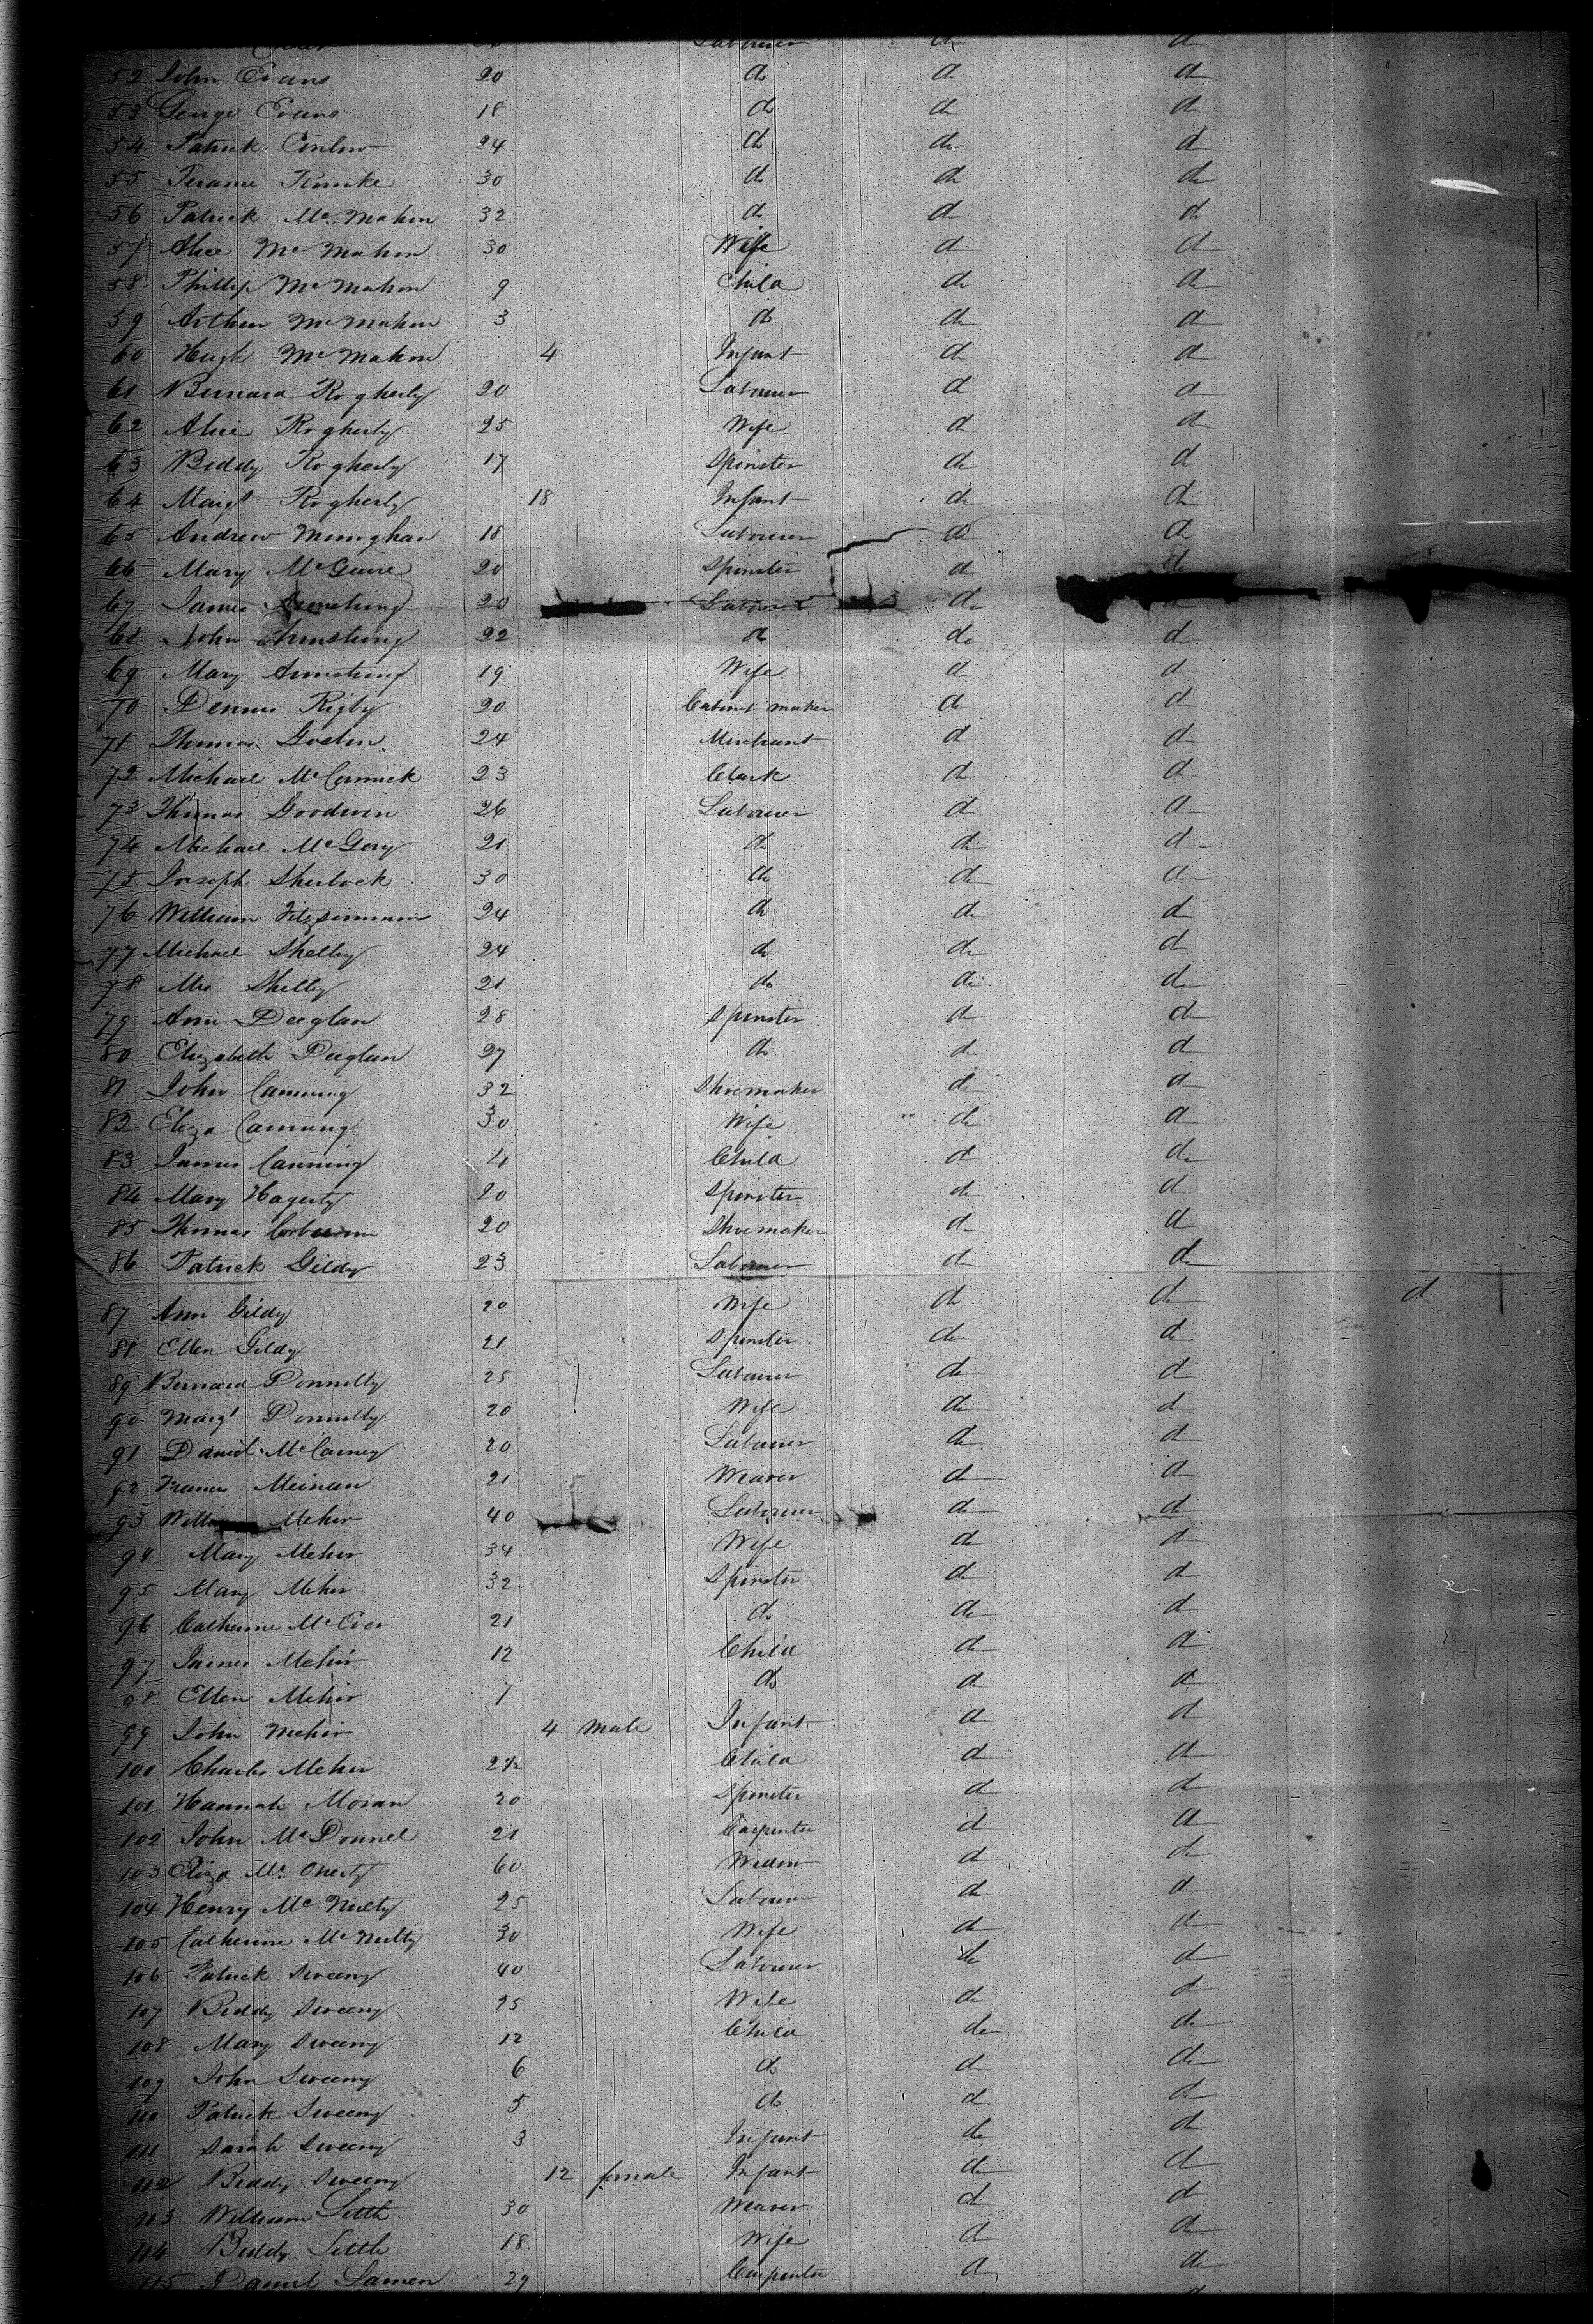 Labourer do do
52 John Evans 20 do do do
53 George Evans 18 do do do
54 Patrick Conlin 24 do do do
55 30 do do do
56 Patrick McMahon 32 do do do
57 Alice McMahon 30 Wife do do
58 Phillip McMahon 9 Child do do
59 Arthur McMahon 3 do do do
60 Hugh McMahon 4 Infant do do
61 Bernard Rogherty 20 Labourer do do
62 Alice Rogherty 25 Wife do do
63 Biddy Rogherty 17 Spinster do do
64 Margt Rogherty 18 Infant do do
65 Andrew Munghan 18 Labourer do do
66 Mary McGuire 20 Spinster do do
67 James Armstrong 20 Labourer do
68 John Armstrong 22 do do do
69 Mary Armstrong 19 Wife do do
70 Dennis Rigby 20 Cabinet maker do do
71 Thomas Goslin 24 Merchant do do
72 Michael McCormick 23 Clark do do
73 Thomas Goodwin 26 Labourer do do
74 Michael McGory 21 do do do
75 Joseph Sherlock 30 do do do
76 William Fitzsimmon 24 do do do
77 Michael Shelly 24 do do do
78 Mrs Shelly 21 do do do
79 Ann Deeglan 28 Spinster do do
80 Elizabeth Deeglan 27 do do do
81 John Canning 32 Shoemaker do do
82 Eliza Canning 30 Wife do do
83 James Canning 4 Child do do
84 Mary Hagerty 20 Spinster do do
85 Thomas 20 Shoemaker do do
86 Patrick Gildy 23 Labourer do do
87 Ann Gildy 20 Wife do do do
88 Ellen Gildy 21 Spinster do do
89 Bernard Donnelly 25 Labourer do do
90 Margt Donnelly 20 Wife do do
91 Daniel McCarney 20 Labourer do do
92 Frances Meinan 21 Weaver do do
93 Mehir 40 Labourer do do
94 Mary Mehir 34 Wife do do
95 Mary Mehir 32 Spinster do do
96 Catherine McEver 21 do do do
97 James Mehir 12 Child do do
98 Ellen Mehir 7 do do do
99 John Mehir 4 male Infant do do
100 Charles Mehir 2½ Child do do
101 Hannah Moran 20 Spinster do do
102 John McDonnel 21 Carpenter do do
103 Eliza Mc 60 Widow do do
104 Henry McNulty 25 Labourer do do
105 Catherine McNulty 30 Wife do do
106 Patrick Sweeny 40 Labourer do do
107 Biddy Sweeny 25 Wife do do
108 Mary Sweeny 12 Child do do
109 John Sweeny 6 do do do
110 Patrick Sweeny 5 do do do
111 Sarah Sweeny 3 Infant do do
112 Biddy Sweeny 12 female Infant do do
113 William Little 30 Weaver do do
114 Biddy Little 18 Wife do do
115 Daniel Lamen 29 Carpenter do do